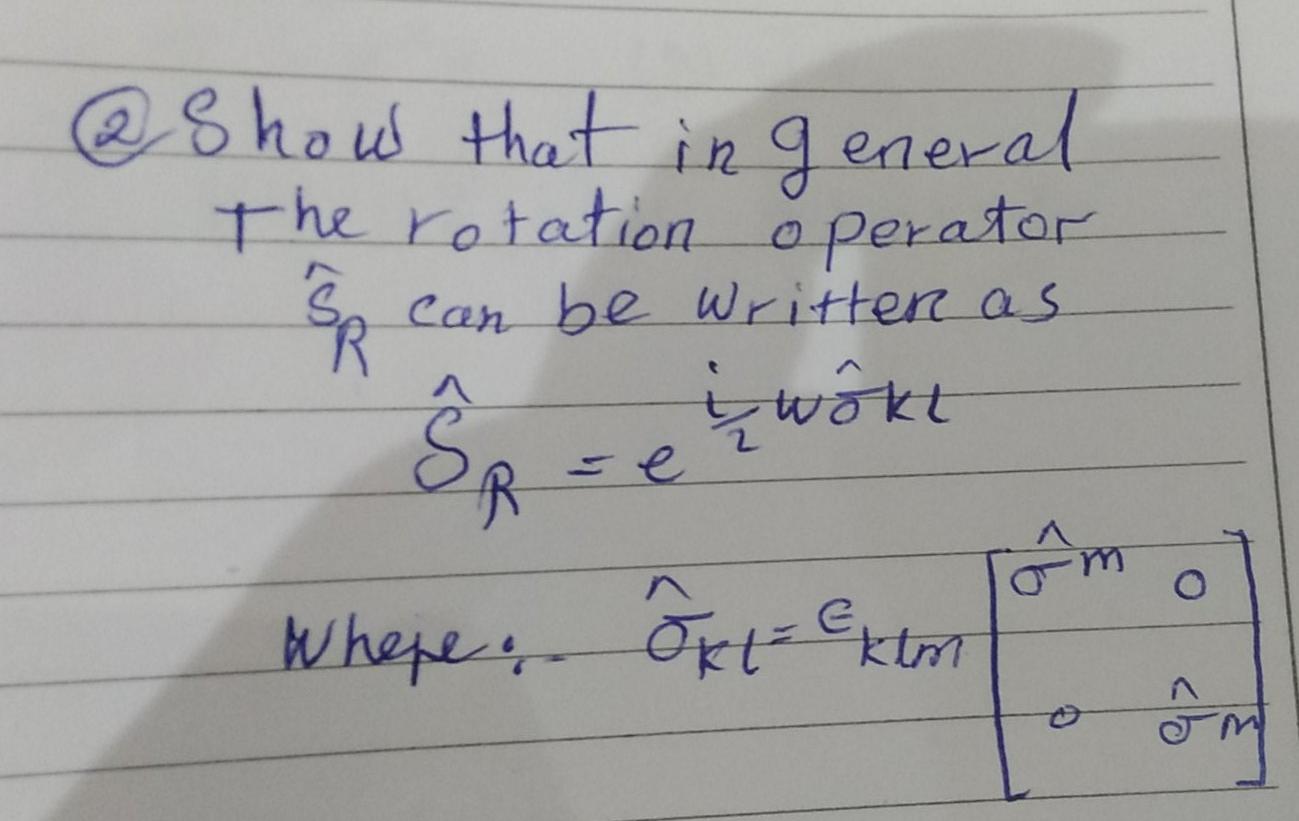 ② Show that in general
The rotation operator
Ŝ_R can be written as
Ŝ_R = e^{i/2 w σ̂ kl}
Where:- σ̂_kl = ϵ_klm [σ̂^m 0
0 σ̂^m]